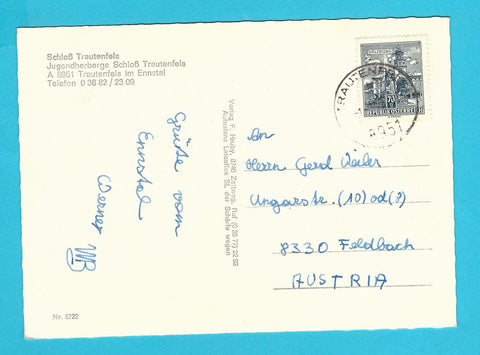 Schloß Trautenfels
Jugendherberge Schloß Trautenfels
A 8951 Trautenfels im Ennstal
Telefon 0 36 82 / 23 09
Grüße vom
Ennstal
Werner
Verlag F. Hruby, 8740 Zeltweg, Ruf (0 35 77) 22 92
Aufnahme Leicaflex SL, der Schärfe wegen
TRAUTENFELS
8951
SALZBURG
REPUBLIK ÖSTERREICH
An
Herrn Gerd
Ungarstr. (10) od (8)
8330 Feldbach
AUSTRIA
Nr. 5722